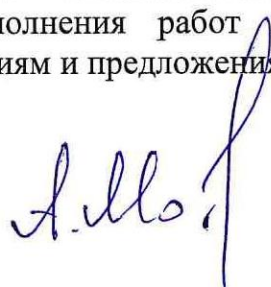 олнения работ
иям и предложения